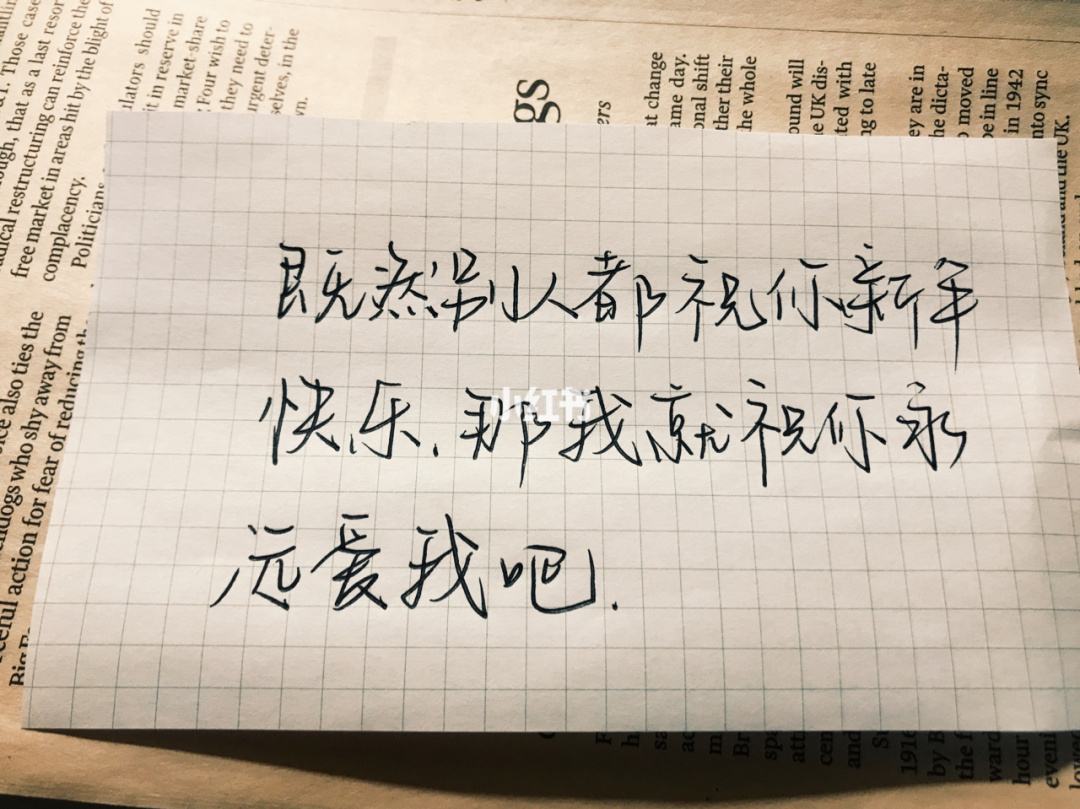 既然别人都祝你新年
快乐.那我就祝你永
远爱我吧.
小红书
antlin
a1. Those case
ough, that as a last resor
dical restructuring can reinforce the
free market in areas hit by the blight of
complacency.
Politicians
ulators should
it in reserve in
market-share
Four wish to
they need to
urgent deter-
selves, in the
wn.
gs
ers
at change
ame day.
onal shift
ther their
he whole
ound will
e UK dis-
ted with
ng to late
ey are in
he dicta-
o moved
be in line
in 1942
nto sync
and the UK.
ice also ties the
endogs who shy away from
ceful action for fear of reducing th
Big
1916
by B
the f
ward
hour
eveni
lowe